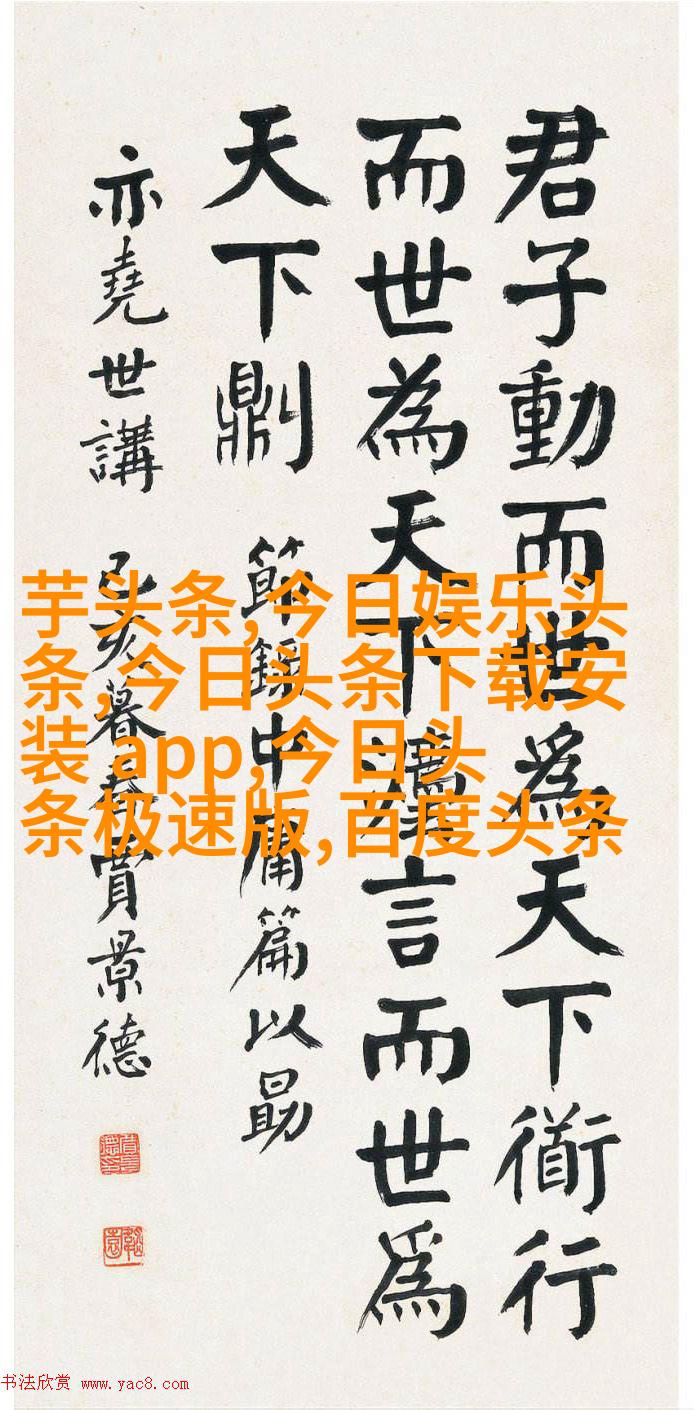 君子動而世為天下衜行
而世為天下灋言而世為
天下𠟭 節錄中庸篇以勗
亦堯世講 己亥暮春賈景德
芋头条,今日娱乐头
条,今日头条下载安
装 app,今日头
条极速版,百度头条
书法欣赏 www.yac8.com